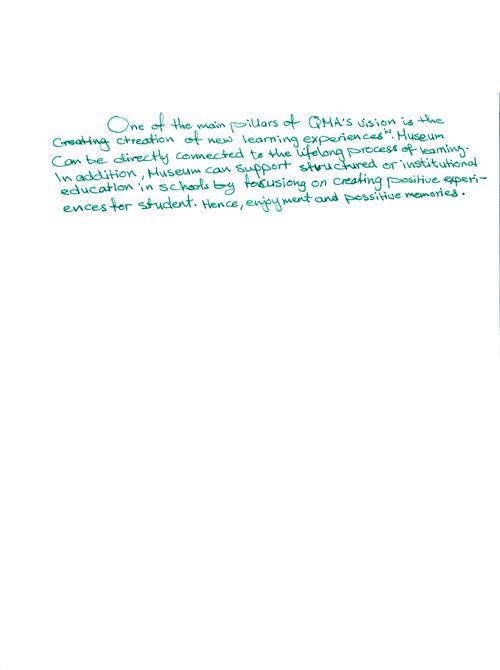 One of the main pillars of QMA's vision is the
Creating ctreation of new learning experiences". Museum
Can be directly connected to the lifelong process of learning.
In addition, Museum can support structured or institutional
education in schools by focusiong on creating positive experi-
ences for student. Hence, enjoyment and possitive memories.